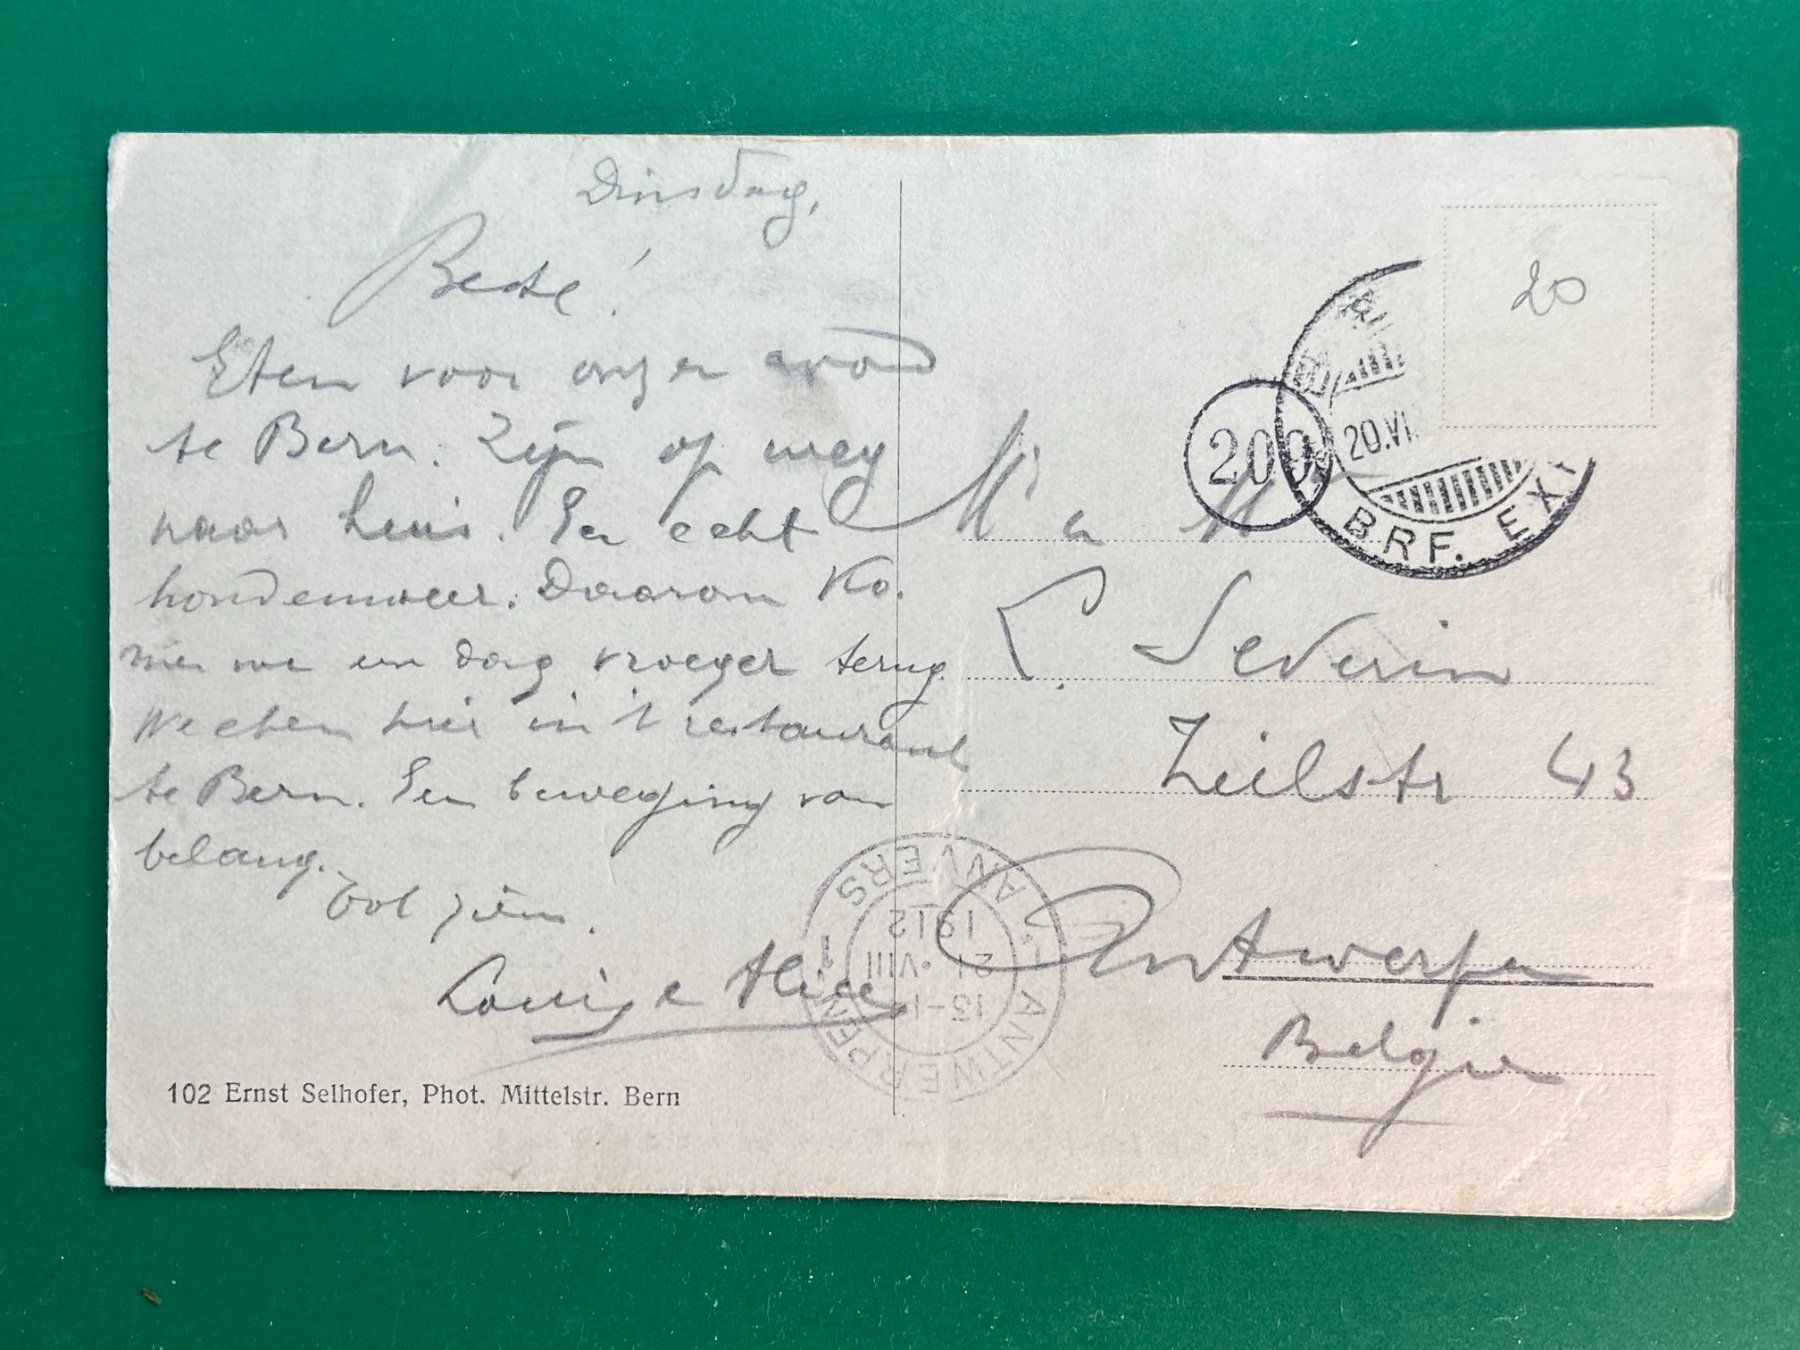 Dinsdag,
Beste!
Eten voor onzen avond
te Bern. Zijn op weg
naar huis. Een echt
hondenweer. Daarom ko.
men we een dag vroeger terug.
We eten hier in 't restaurant
te Bern. Een beweging van
belang.
Tot ziens.
Louis en Alice
102 Ernst Selhofer, Phot. Mittelstr. Bern
20
200
20.VI
BRF. EX
Mr en M
L. Severin
Zeilstr 43
Antwerpen
België
ANTWERPEN 1
13-1
21.VIII
1912
ANVERS